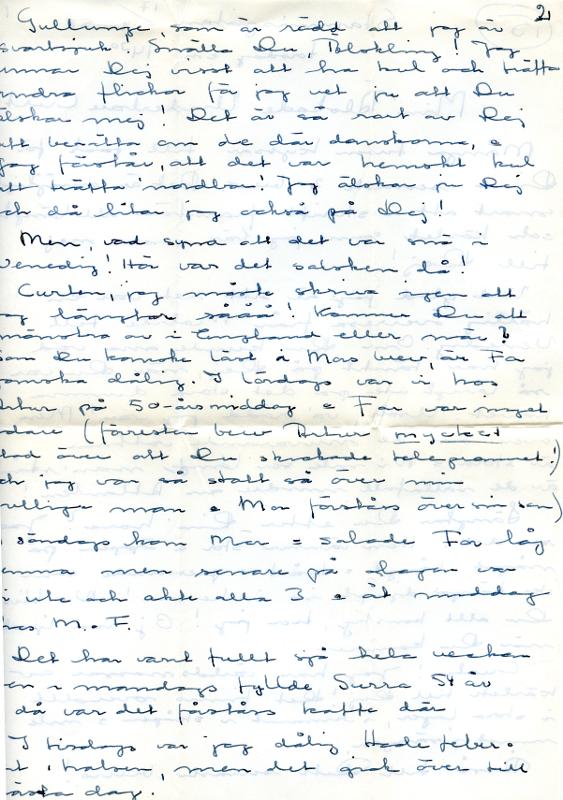 2
Gullunge, som är rädd att jag är
svartsjuk. Snälla Du, Blokling! Jag
unnar Dej visst att ha kul och träffa
andra flickor för jag vet ju att Du
älskar mej! Det är så rart av Dej
att berätta om de där danskorna, o
jag förstår, att det var hemskt kul
att träffa nordbor! Jag älskar ju Dej
och då litar jag också på Dej!
Men vad synd att det var små i
Venedig! Här var det saloken då!
Curten, jag måste skriva igen att
jag längtar sååå! Kommer Du att
mönstra av i England eller när?
Som Du kanske läst i Mors brev, är Far
ganska dålig. I lördags var vi hos
på 50-årsmiddag o Far var inget
vidare (förresten blev mycket
glad över att Du skickade telegrammet!)
och jag var så stolt så över min
trevliga man o Mor förstårs över sin son)
I söndags kom Mor o Far låg
hemma men senare på dagen var
vi ute och åkte alla 3 o åt middag
hos M. o F.
Det har varit fullt sjå hela veckan
en i måndags fyllde Surra 54 år
då var det förstårs kaffe där
I tisdags var jag dålig. Hade feber o
ont i halsen, men det gick över till
nästa dag.